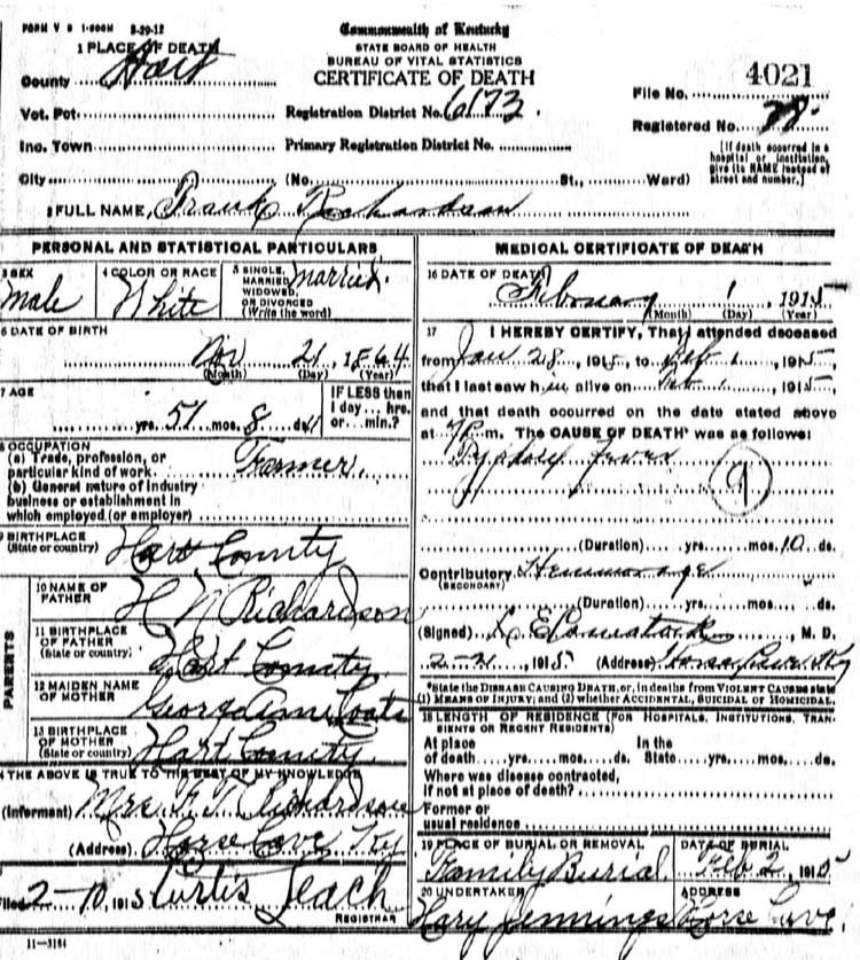 FORM V S 1-500M 8-29-12
Commonwealth of Kentucky
STATE BOARD OF HEALTH
BUREAU OF VITAL STATISTICS
CERTIFICATE OF DEATH
1 PLACE OF DEATH
County Hart
Vot. Pct.
Inc. Town
City
Registration District No. 6173
Primary Registration District No.
(No. St., Ward)
File No. 4021
Registered No.
(If death occurred in a
hospital or institution,
give its NAME instead of
street and number.)
2 FULL NAME, Frank Richardson
PERSONAL AND STATISTICAL PARTICULARS
3 SEX
male
4 COLOR OR RACE
White
5 SINGLE,
MARRIED,
WIDOWED,
OR DIVORCED
(Write the word)
Married
6 DATE OF BIRTH
Nov 21, 1864
(Month) (Day) (Year)
7 AGE
yrs. 51 mos. 8 ds.
IF LESS than
1 day... hrs.
or... min.?
8 OCCUPATION
(a) Trade, profession, or
particular kind of work Farmer.
(b) General nature of industry
business or establishment in
which employed (or employer)
9 BIRTHPLACE
(State or country) Hart County
PARENTS
10 NAME OF
FATHER H N Richardson
11 BIRTHPLACE
OF FATHER
(State or country) Hart County
12 MAIDEN NAME
OF MOTHER Coats
13 BIRTHPLACE
OF MOTHER
(State or country) Hart County
THE ABOVE IS TRUE TO THE BEST OF MY KNOWLEDGE
(Informant) Mrs F. T. Richardson
(Address) Horse Cave Ky
Filed 2-10, 1915 Curtis Leach
REGISTRAR
11-3184
MEDICAL CERTIFICATE OF DEATH
16 DATE OF DEATH
February 1, 1915
(Month) (Day) (Year)
17 I HEREBY CERTIFY, That I attended deceased
from Jan 28, 1915, to Feb 1, 1915,
that I last saw him alive on Feb 1, 1915,
and that death occurred on the date stated above
at m. The CAUSE OF DEATH* was as follows:
Typhoid Fever
9
(Duration) yrs. mos. 10 ds.
Contributory Hemmorage
(SECONDARY)
(Duration) yrs. mos. ds.
(Signed) , M. D.
1915 (Address) Horse Cave Ky
*State the DISEASE CAUSING DEATH, or, in deaths from VIOLENT CAUSES state
(1) MEANS OF INJURY; and (2) whether ACCIDENTAL, SUICIDAL or HOMICIDAL.
18 LENGTH OF RESIDENCE (FOR HOSPITALS, INSTITUTIONS, TRAN-
SIENTS OR RECENT RESIDENTS)
At place In the
of death yrs. mos. ds. State yrs. mos. ds.
Where was disease contracted,
if not at place of death?
Former or
usual residence
19 PLACE OF BURIAL OR REMOVAL
Family Burial
DATE OF BURIAL
Feb 2, 1915
20 UNDERTAKER
Hary Jennings
ADDRESS
Horse Cave